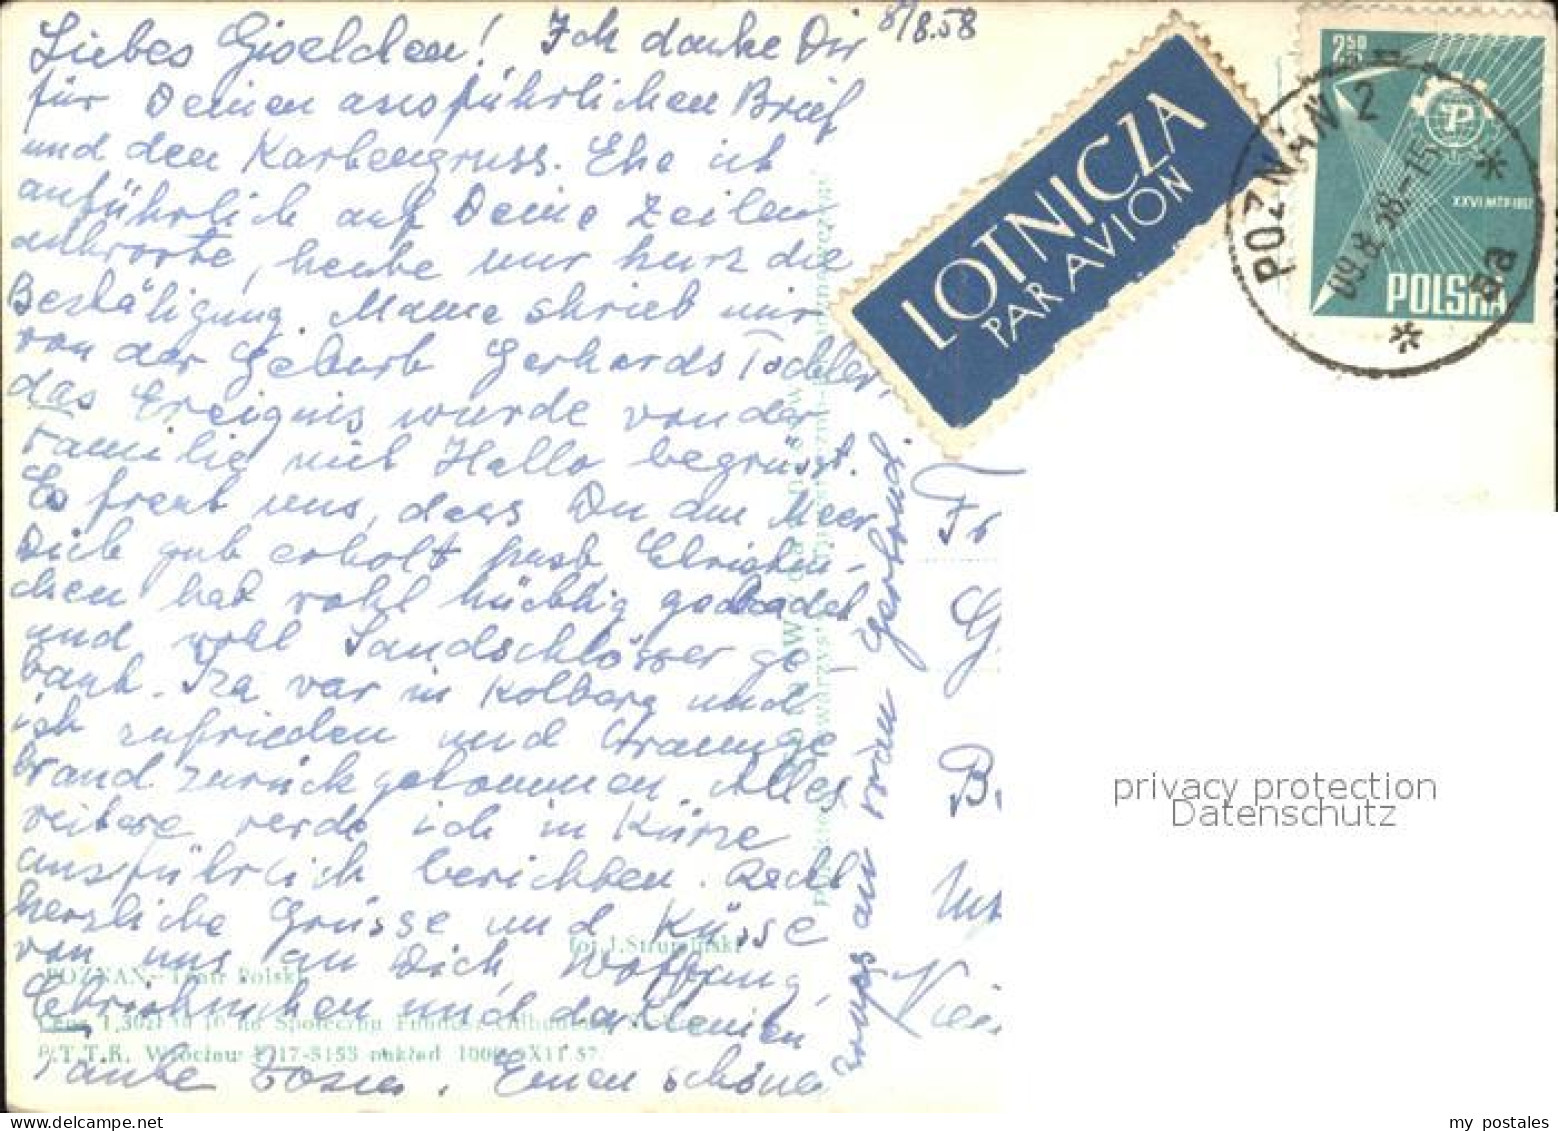 8/8.58
Liebes Giselchen! Ich danke Dir
für Deinen ausführlichen Brief
und den Kartengruss. Ehe ich
ausführlich auf Deine Zeilen
antworte, heute nur kurz die
Bestätigung. Mame schrieb mir
von der Geburt Gerhards Tochter,
das Ereignis wurde von der
Familie mit Hallo begrüsst.
Es freut uns, dass Du am Meer
Dich gut erholt hast Christin-
chen hat wohl tüchtig gebadet
und wohl Sandschlösser ge-
baut. Iza war in Kolberg und
ist zufrieden und braunge
brand zurückgekommen. Alles
weitere werde ich in Kürze
ausführlich berichten. Recht
herzliche Grüsse und Küsse
von uns an Dich, Wolfgang,
Christinchen und der kleinen
Tante. Einen schönen
Gruss an von Gertrud
LOTNICZA
PAR AVION
2.50
TP
XXVI MTP 1957
POLSKA
POZNAŃ 2
09.8.58.-15
5a
Fr
G
B
Wien
fot. J. Strumiński
POZNAŃ - Teatr Polski
P.T.T.K. Wrocław
privacy protection
Datenschutz
my postales